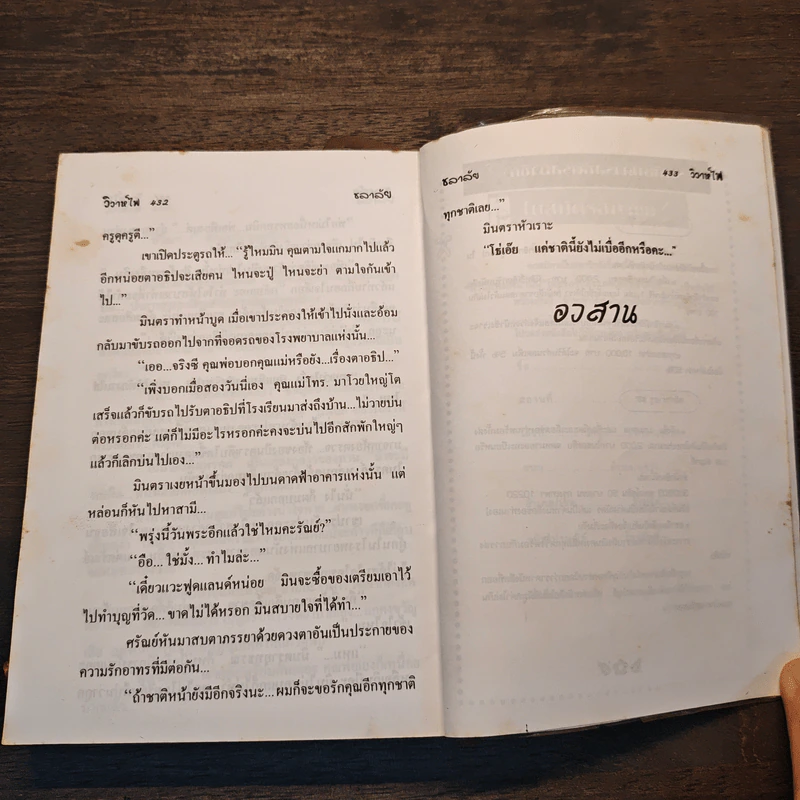 วิวาห์ไฟ 432
ชลาลัย
ครูดุครูดี...”
เขาเปิดประตูรถให้... “รู้ไหมมิน คุณตามใจแกมากไปแล้ว
อีกหน่อยตาอธิปจะเสียคน ไหนจะปู่ ไหนจะย่า ตามใจกันเข้า
ไป...”
มินตราทำหน้าบูด เมื่อเขาประคองให้เข้าไปนั่งและอ้อม
กลับมาขับรถออกไปจากที่จอดรถของโรงพยาบาลแห่งนั้น...
“เออ...จริงซี คุณพ่อบอกคุณแม่หรือยัง...เรื่องตาอธิป...”
“เพิ่งบอกเมื่อสองวันนี่เอง คุณแม่โทร. มาโวยใหญ่โต
เสร็จแล้วก็ขับรถไปรับตาอธิปที่โรงเรียนมาส่งถึงบ้าน...ไม่วายบ่น
ต่อหรอกค่ะ แต่ก็ไม่มีอะไรหรอกค่ะคงจะบ่นไปอีกสักพักใหญ่ๆ
แล้วก็เลิกบ่นไปเอง...”
มินตราเงยหน้าขึ้นมองไปบนดาดฟ้าอาคารแห่งนั้น แต่
หล่อนก็หันไปหาสามี...
“พรุ่งนี้วันพระอีกแล้วใช่ไหมคะรัณย์?”
“อือ... ใช่มั้ง... ทำไมล่ะ...”
“เดี๋ยวแวะฟูดแลนด์หน่อย มินจะซื้อของเตรียมเอาไว้
ไปทำบุญที่วัด... ขาดไม่ได้หรอก มินสบายใจที่ได้ทำ...”
ศรัณย์หันมาสบตาภรรยาด้วยดวงตาอันเป็นประกายของ
ความรักอาทรที่มีต่อกัน...
“ถ้าชาติหน้ายังมีอีกจริงนะ... ผมก็จะขอรักคุณอีกทุกชาติ
ชลาลัย
433 วิวาห์ไฟ
ทุกชาติเลย...”
มินตราหัวเราะ
“โธ่เอ๊ย แค่ชาตินี้ยังไม่เบื่ออีกหรือคะ...”
อวสาน